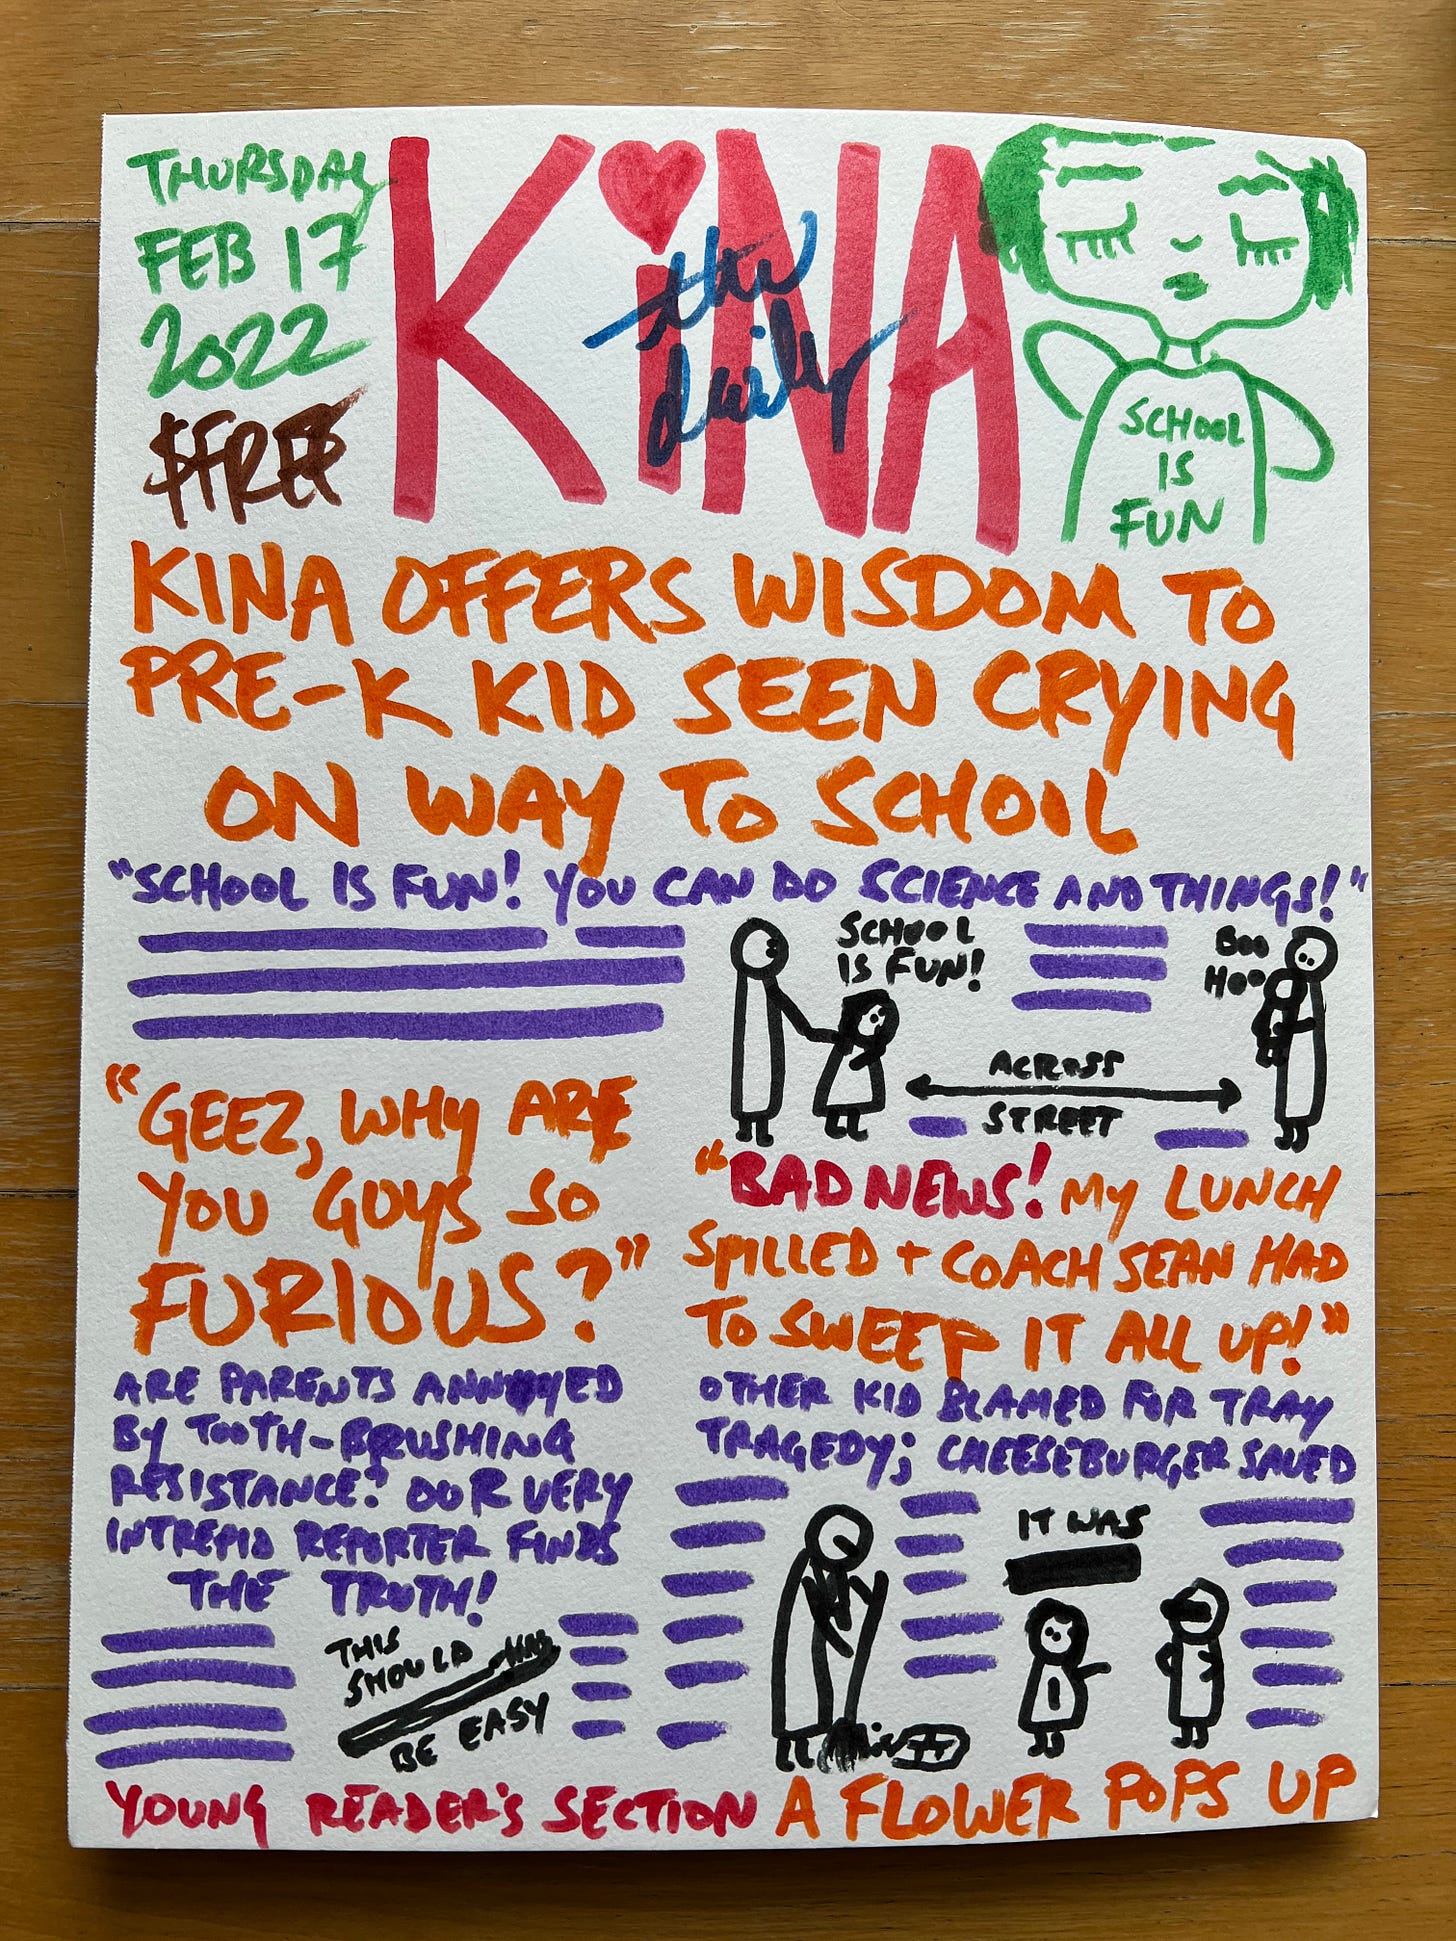 THURSDAY
FEB 17
2022
$FREE
KiNA
the
daily
SCHOOL
IS
FUN
KINA OFFERS WISDOM TO
PRE-K KID SEEN CRYING
ON WAY TO SCHOOL
"SCHOOL IS FUN! YOU CAN DO SCIENCE AND THINGS!"
SCHOOL
IS FUN!
BOO
HOO
ACROSS
STREET
"GEEZ, WHY ARE
YOU GUYS SO
FURIOUS?"
ARE PARENTS ANNOYED
BY TOOTH-BRUSHING
RESISTANCE? OUR VERY
INTREPID REPORTER FINDS
THE TRUTH!
THIS
SHOULD
BE EASY
"BAD NEWS! MY LUNCH
SPILLED + COACH SEAN HAD
TO SWEEP IT ALL UP!"
OTHER KID BLAMED FOR TRAY
TRAGEDY; CHEESEBURGER SAVED
IT WAS
YOUNG READER'S SECTION A FLOWER POPS UP